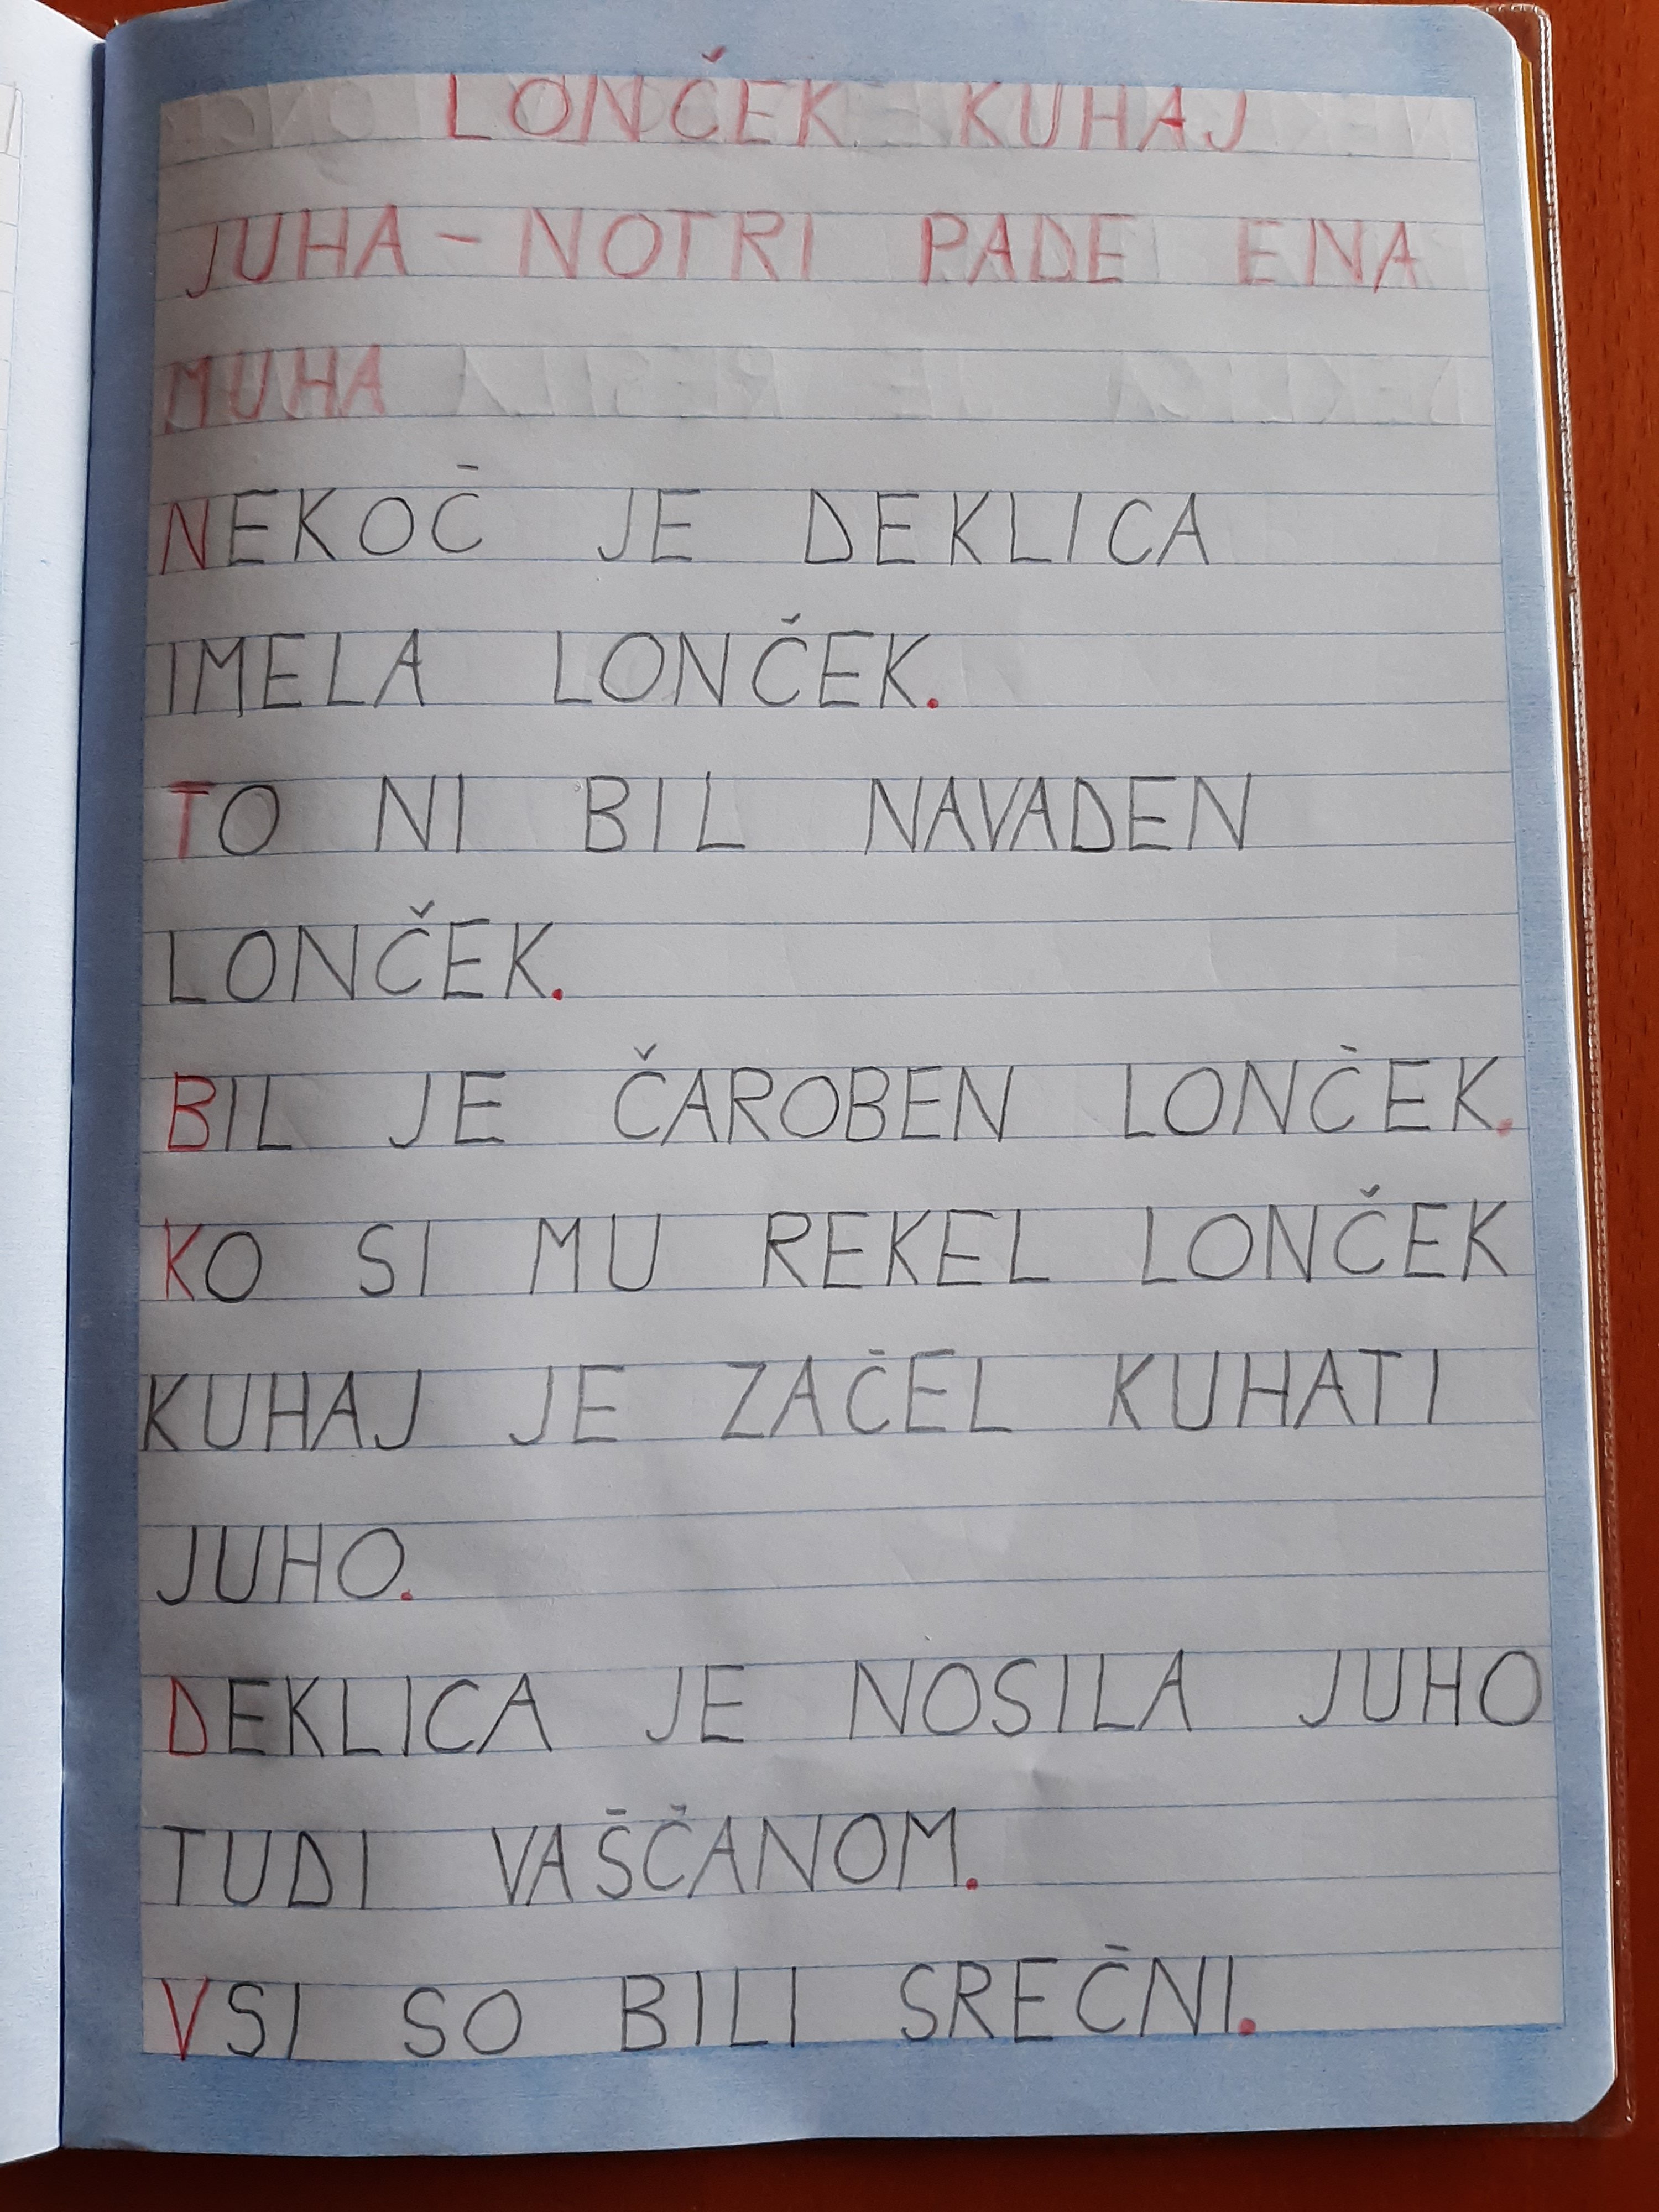 LONČEK KUHAJ
JUHA - NOTRI PADE ENA
MUHA
NEKOČ JE DEKLICA
IMELA LONČEK.
TO NI BIL NAVADEN
LONČEK.
BIL JE ČAROBEN LONČEK.
KO SI MU REKEL LONČEK
KUHAJ JE ZAČEL KUHATI
JUHO.
DEKLICA JE NOSILA JUHO
TUDI VAŠČANOM.
VSI SO BILI SREČNI.